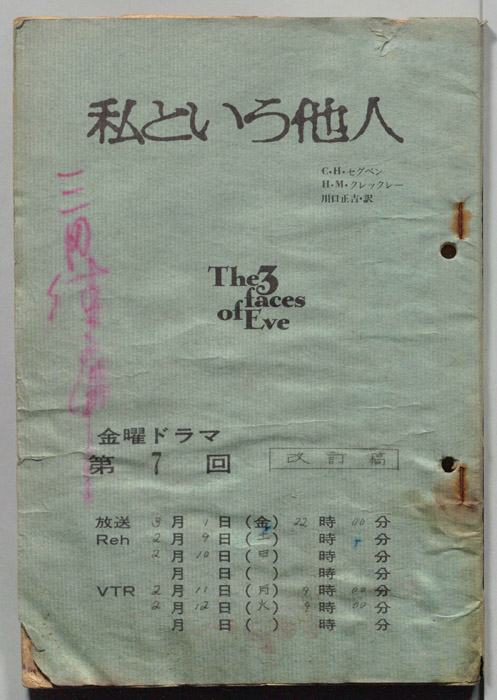 私という他人
C・H・セグペン
H・M・クレックレー
川口正吉・訳
The 3
faces
of Eve
金曜ドラマ
第 7 回
改訂稿
放送 3 月 1 日 (金) 22 時 00 分
Reh 2 月 9 日 (土) 時 分
2 月 10 日 (日) 時 分
月 日 ( ) 時 分
VTR 2 月 11 日 (月) 9 時 00 分
2 月 12 日 (火) 9 時 00 分
月 日 ( ) 時 分